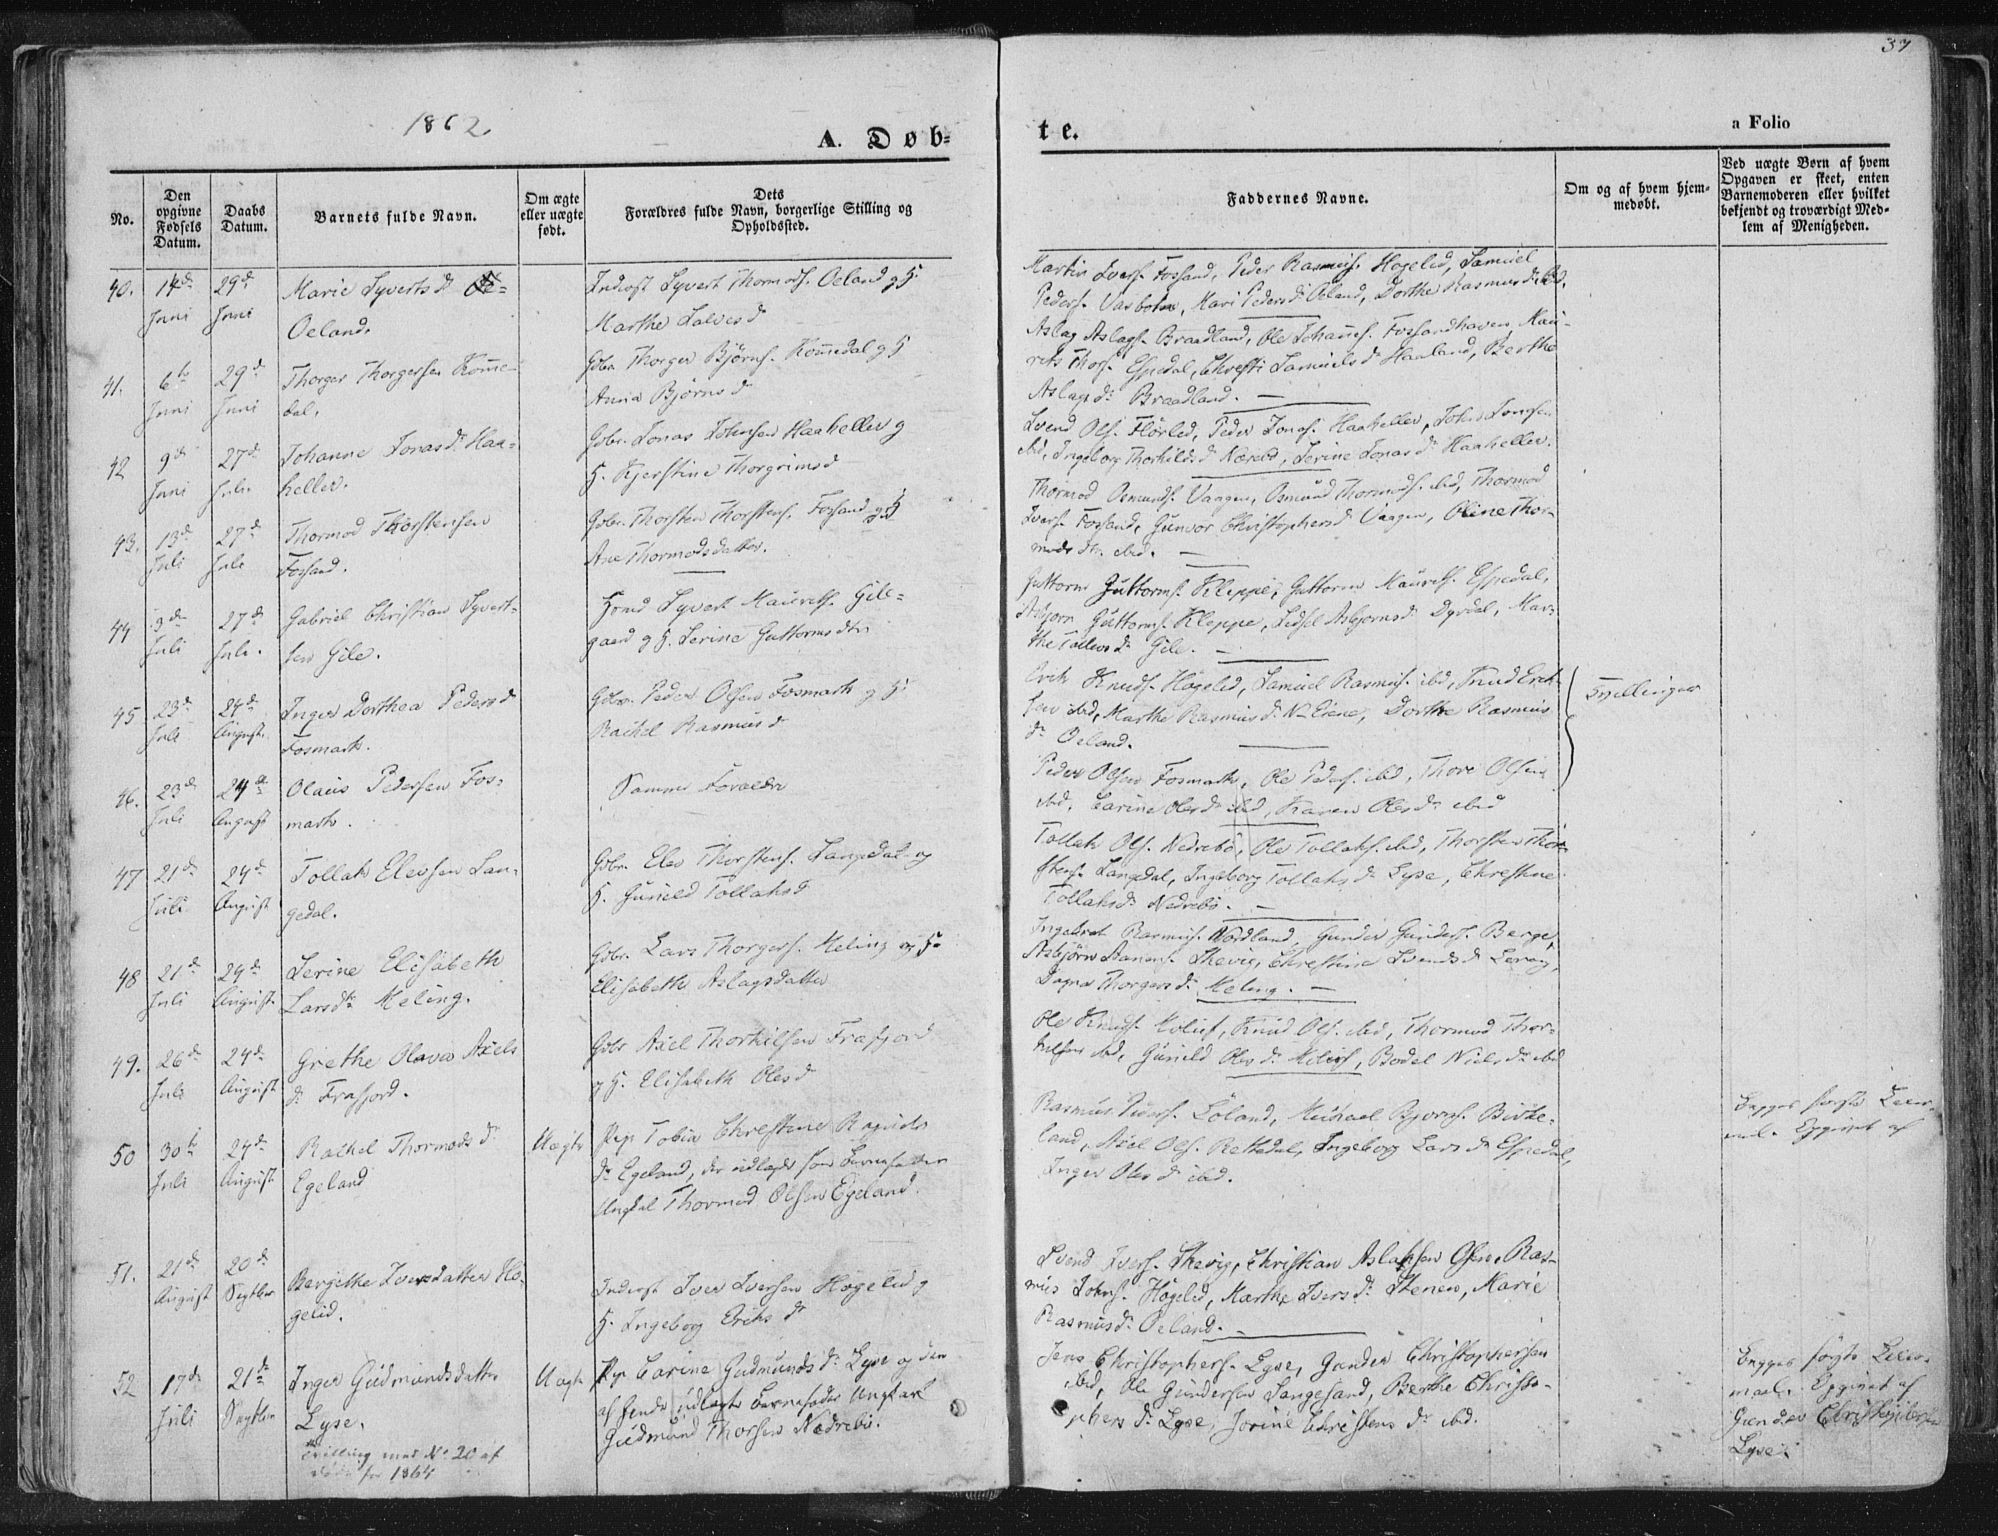 37
1862.
A. Døb-
te.
a Folio
No.
Den opgivne Fødsels Datum.
Daabs Datum.
Barnets fulde Navn.
Om ægte eller uægte født.
Dets Forældres fulde Navn, borgerlige Stilling og Opholdssted.
Faddernes Navne.
Om og af hvem hjem-
medøbt.
Ved uægte Børn af hvem
Opgaven er skeet, enten
Barnemoderen eller hvilket
bekjendt og troværdigt Med-
lem af Menigheden.
40. 14de Juni 29de Juni
Marie Syvertsdr
Oeland.
Inderst Syvert Thormods. Oeland og H.
Marthe Lalvesd
Martin Ivers. Fossand, Peder Rasmus. Høgelid, Samuel
Peders. Vasbotn, Mari Pedersdr Oeland, Dorthe Rasmusdr ibd.
41. 6te Juni 29de Juni
Thorger Thorgersen Komme-
dal.
Gbr. Thorger Bjørns. Kommedal og H
Anna Bjørnsd
Aslag Aslags. Braadland, Ole Johannes. Fossandhaven, Mau-
rits Thos. Espedal, Christi Samuelsdr Haaland, Berthe
Aslagsdr Braadland.
42 9de Juni 27de Juli
Johanne Jonasdr Haa-
heller.
Gbr. Jonas Johnsen Haaheller og
H. Kjerstine Thorgrimsd
Svend Ols. Flørlid, Peder Jonas. Haaheller, John Jonsen
ibd, Ingeborg Thorkildsd Nærød, Serine Jonasdr Haaheller.
43. 13de Juli 27de Juli
Thormod Thorstensen
Fossand.
Gbr. Thorsten Thorstens. Fossand og H
Ane Thormodsdatter.
Thormod Osmunds. Vaagen, Osmund Thormods. ibd, Thormod
Ivers. Fossand, Gunvor Christophersd Vaagen, Oline Thor-
modsdtr. ibd.
44 3de Juli 27de Juli.
Gabriel Christian Syvert-
sen Gile.
Hmd Syvert Maurits. Gile-
gaard og H. Serine Guttormsdtr
Guttorm Guttorms. Kleppe, Guttorm Maurits. Espedal,
Asbjørn Guttorms. Kleppe, Sidsel Asbjørnsdr Dyrdal, Mar-
the Tollevsdr Gile.
45 23de Juli 24de August.
Inger Dorthea Pedersd
Fosmark.
Gbr. Peder Olsen Fosmark og H
Rachel Rasmusd
Erik Knuds. Høgelid, Samuel Rasmus. ibd, Knud Erik-
sen ibd, Marthe Rasmusdr N-Eiene, Dorthe Rasmus
dr Oeland.
Tvillinger
46. 23de Juli 24de August
Olaus Pedersen Fos-
mark.
Samme Forældre
Peder Olsen Fosmark, Ole Peders. ibd, Thore Olsen
ibd, Carine Olesdr ibd, Karen Olesdr ibid
47 21de Juli 24de August
Tollak Elevsen Lan-
gedal.
Gbr. Elev Thorstens. Langedal og
H. Gunild Tollaksd
Tollak Ols. Nedrebø, Ole Tollaks. ibd, Thorsten Thor-
stens. Langedal, Ingeborg Tollaksdr Lyse, Christine
Tollaksdr Nedrebø.
48 21de Juli 24de August
Serine Elisabeth
Larsdtr Meling.
Gbr. Lars Thorgers. Meling og H.
Elisabeth Aslagsdatter
Ingebret Rasmus. Nordland, Gunder Gunders. Berge,
Asbjørn Hanens. Thevig, Christine Svendsdr Levag,
Dagne Thorgersdr Meling.
49. 26de Juli 24de August
Grethe Olava Axels
dr Frafjord.
Gbr Axel Thorkilsen Frafjord
og H. Elisabeth Olesd
Ole Knuds. Molief, Knud Ols. ibd, Thormod Thor-
kilsen ibd, Gunild Olesdr Molief, Bodel Nielsdr ibd
50 30te Juli 24de August
Rachel Thormodsdr
Egeland
Uægte
Pige Tobia Christine Rasmus
dr Egeland, der udlagde som Barnefader
Ungkal Thormod Olsen Egeland.
Rasmus Peders. Løland, Michael Bjørns. Birke-
land, Axel Ols. Rettedal, Ingeborg Larsdr Espedal,
Inger Olesd ibd.
Begges første Leier-
maal. Opgivet af
51. 21de August 20de Septbr
Bergithe Iversdatter Hø-
gelid.
Inderst Iver Iversen Høgelid og
H. Ingeborg Eriksdr
Svend Ivers. Thevig, Christian Aslaksen Osen, Ras-
mus Johns. Høgelid, Marthe Iversdr Stenen, Marie
Rasmusdr Oeland.
52 17de Juli 21de Septbr
Inger Gudmundsdatter
Lyse.
Tvilling med No 20 af
døde for 1864
Uægte
Pige Carine Gudmundsdr Lyse og den
af hende udlagte Barnefader Ungkal
Gudmund Thorsen Nedrebø.
Jens Christophers. Lyse, Gunder Christophersen
ibd, Ole Gundersen Songesand, Berthe Christo-
phersdr Lyse, Jorine Christensdr ibd.
Begges første Leier-
maal. Opgivet af
Gunder Christophersen
Lyse.